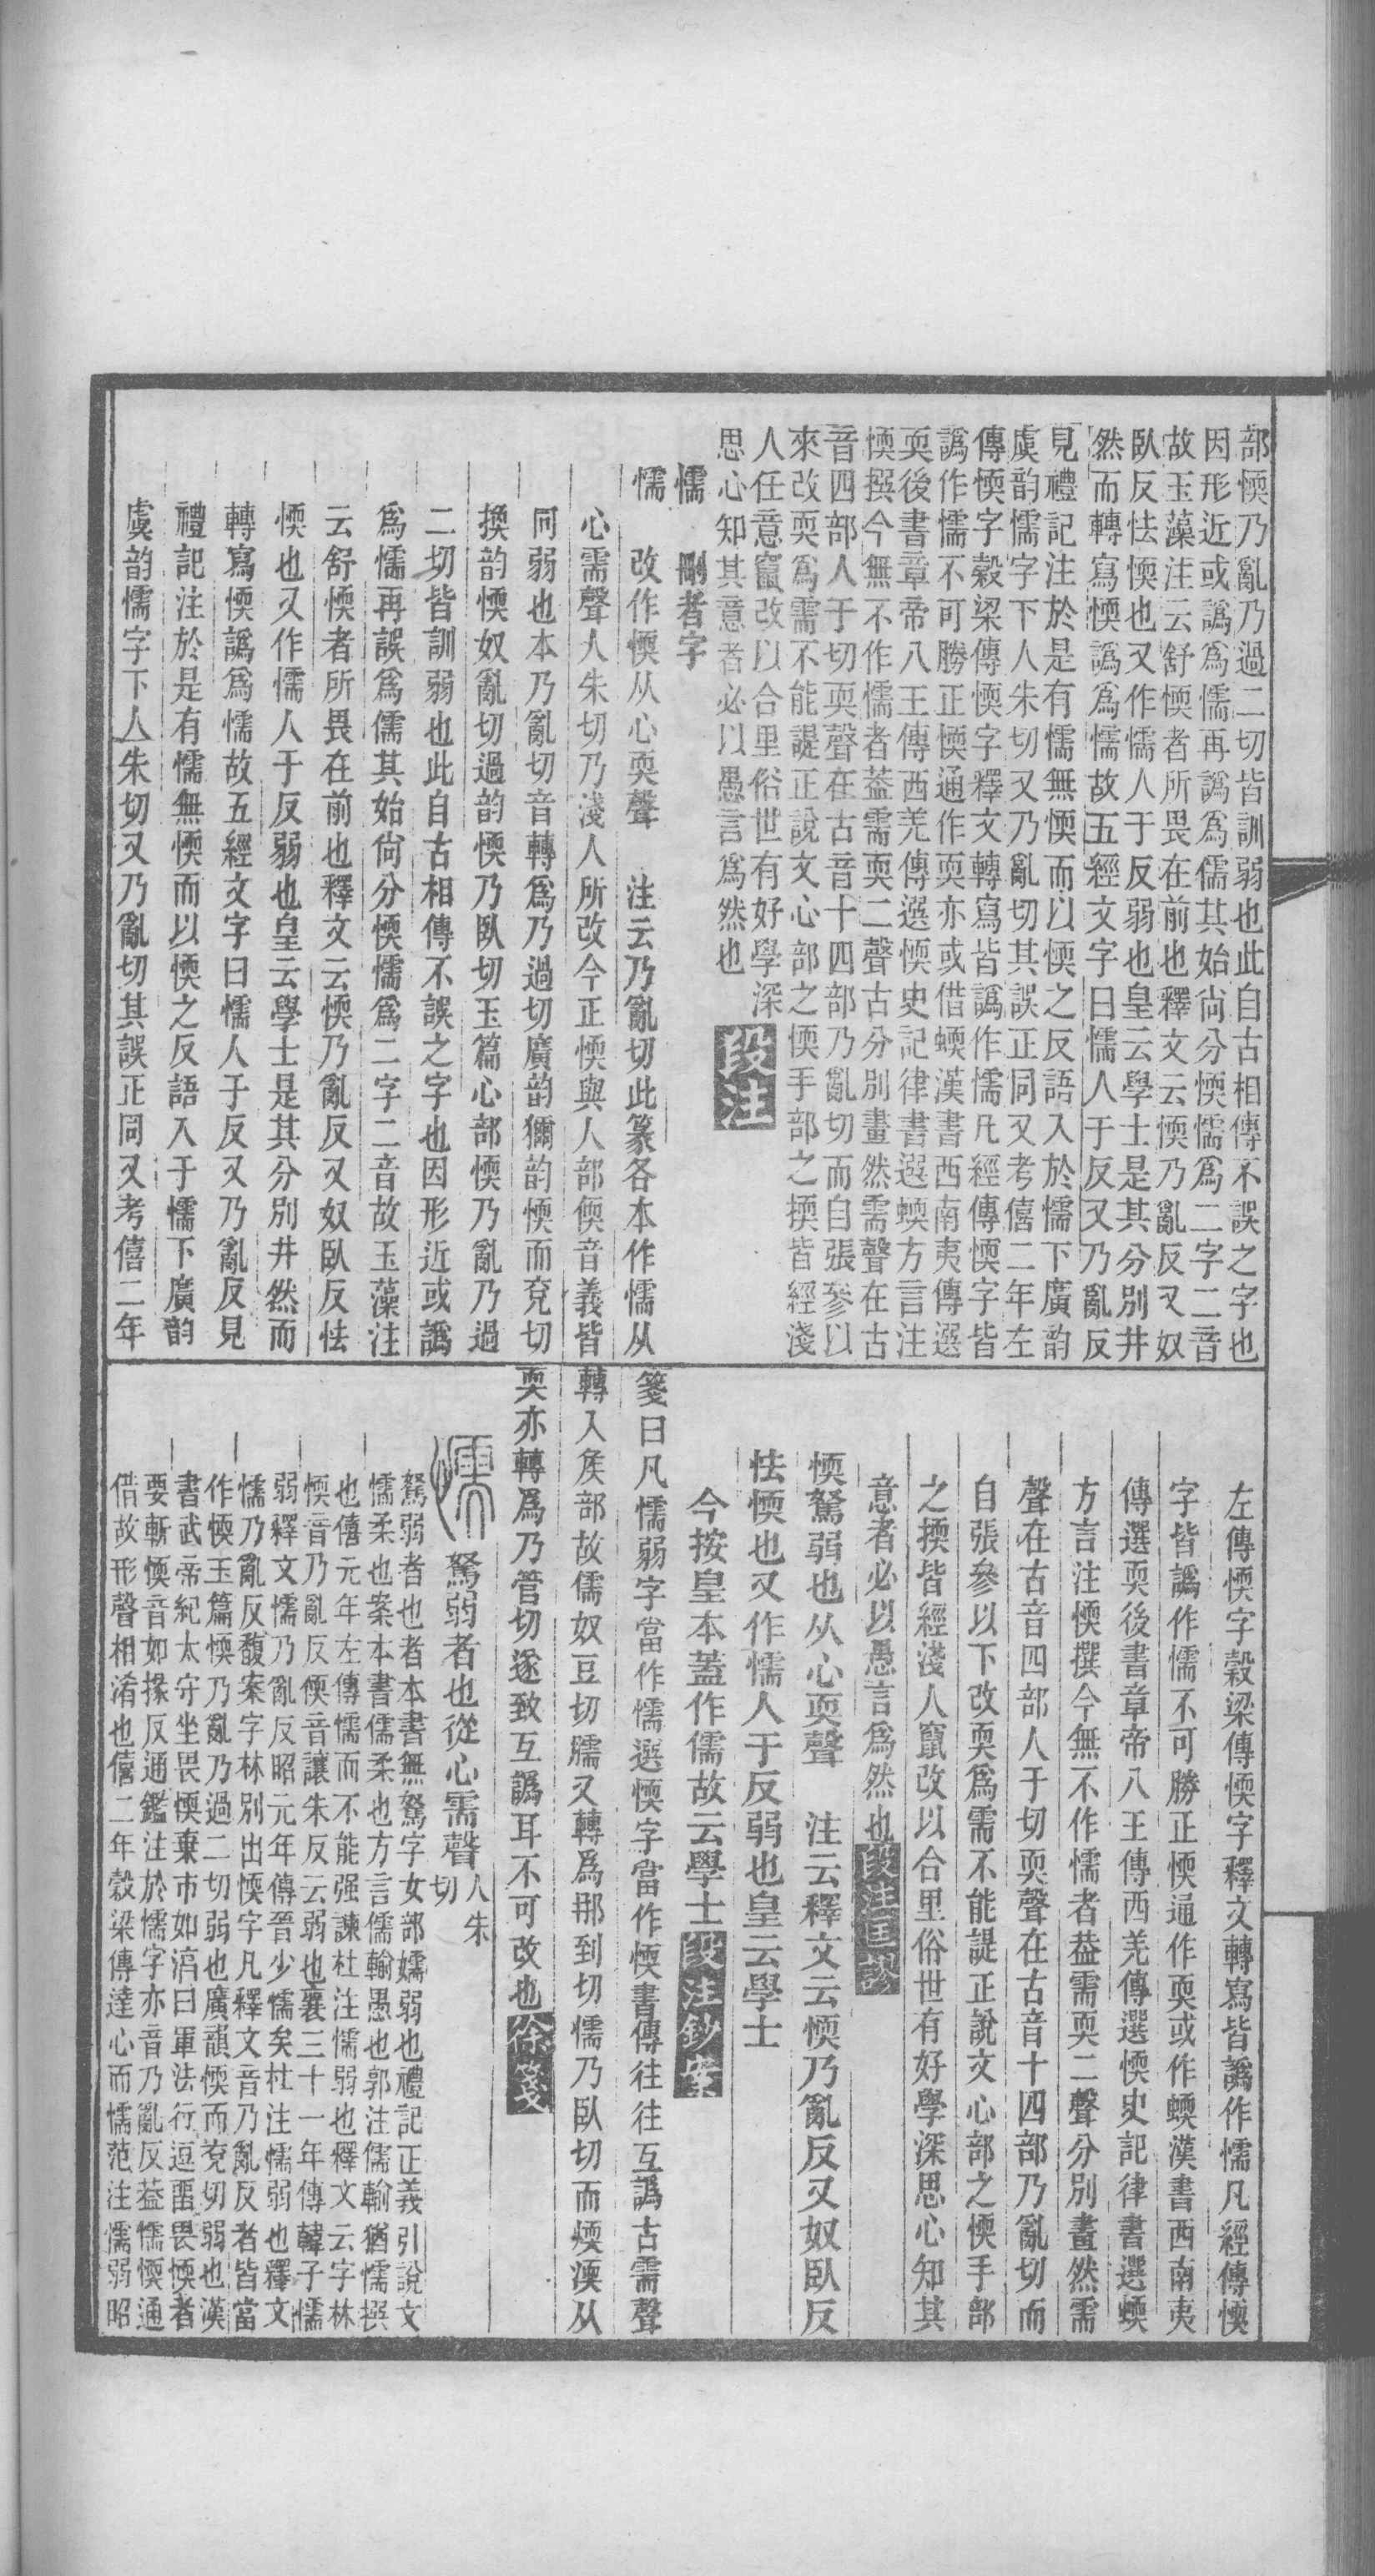 部愞乃亂乃過二切皆訓弱也此自古相傳不誤之字也
因形近或譌爲懦再譌爲儒其始尙分愞懦爲二字二音
故玉藻注云舒愞者所畏在前也釋文云愞乃亂反又奴
臥反怯愞也又作懦人于反弱也皇云學士是其分別井
然而轉寫愞譌爲懦故五經文字曰懦人于反又乃亂反
見禮記注於是有懦無愞而以愞之反語入於懦下廣韵
虞韵懦字下人朱切又乃亂切其誤正同又考僖二年左
傳愞字穀梁傳愞字釋文轉寫皆譌作懦凡經傳愞字皆
譌作懦不可勝正愞通作耎亦或借蝡漢書西南夷傳選
耎後書章帝八王傳西羌傳選愞史記律書選蝡方言注
愞撰今無不作懦者葢需耎二聲古分別畫然需聲在古
音四部人于切耎聲在古音十四部乃亂切而自張參以
來改耎爲需不能諟正說文心部之愞手部之擩皆經淺
人任意竄改以合里俗世有好學深
思心知其意者必以愚言爲然也段注
懦 剛者字
懦 改作愞从心耎聲 注云乃亂切此篆各本作懦从
心需聲人朱切乃淺人所改今正愞與人部偄音義皆
同弱也本乃亂切音轉爲乃過切廣韵獮韵愞而兗切
換韵愞奴亂切過韵愞乃臥切玉篇心部愞乃亂乃過
二切皆訓弱也此自古相傳不誤之字也因形近或譌
爲懦再誤爲儒其始尙分愞懦爲二字二音故玉藻注
云舒愞者所畏在前也釋文云愞乃亂反又奴臥反怯
愞也又作懦人于反弱也皇云學士是其分別井然而
轉寫愞譌爲懦故五經文字曰懦人于反又乃亂反見
禮記注於是有懦無愞而以愞之反語入于懦下廣韵
虞韵懦字下人朱切又乃亂切其誤正同又考僖二年
左傳愞字穀梁傳愞字釋文轉寫皆譌作懦凡經傳愞
字皆譌作懦不可勝正愞通作耎或作蝡漢書西南夷
傳選耎後書章帝八王傳西羌傳選愞史記律書選蝡
方言注愞撰今無不作懦者葢需耎二聲分別畫然需
聲在古音四部人于切耎聲在古音十四部乃亂切而
自張參以下改耎爲需不能諟正說文心部之愞手部
之擩皆經淺人竄改以合里俗世有好學深思心知其
意者必以愚言爲然也段注匡謬
愞駑弱也从心耎聲 注云釋文云愞乃亂反又奴臥反
怯愞也又作懦人于反弱也皇云學士
今按皇本葢作儒故云學士段注鈔案
箋曰凡懦弱字當作懦選愞字當作愞書傳往往互譌古需聲
轉入矦部故儒奴豆切臑又轉爲那到切懦乃臥切而煗渜从
耎亦轉爲乃管切遂致互譌耳不可改也徐箋
懦 駑弱者也從心需聲人朱切
駑弱者也者本書無駑字女部嬬弱也禮記正義引說文
懦柔也案本書儒柔也方言儒輸愚也郭注儒輸猶懦撰
也僖元年左傳懦而不能强諫杜注懦弱也釋文云字林
愞音乃亂反偄音讓朱反云弱也襄三十一年傳韓子懦
弱釋文懦乃亂反昭元年傳晉少懦矣杜注懦弱也釋文
懦乃亂反馥案字林別出愞字凡釋文音乃亂反者皆當
作愞玉篇愞乃亂乃過二切弱也廣韻愞而兗切弱也漢
書武帝紀太守坐畏愞棄市如湻曰軍法行逗畱畏愞者
要斬愞音如掾反通鑑注於懦字亦音乃亂反葢懦愞通
借故形聲相淆也僖二年穀梁傳達心而懦范注懦弱昭